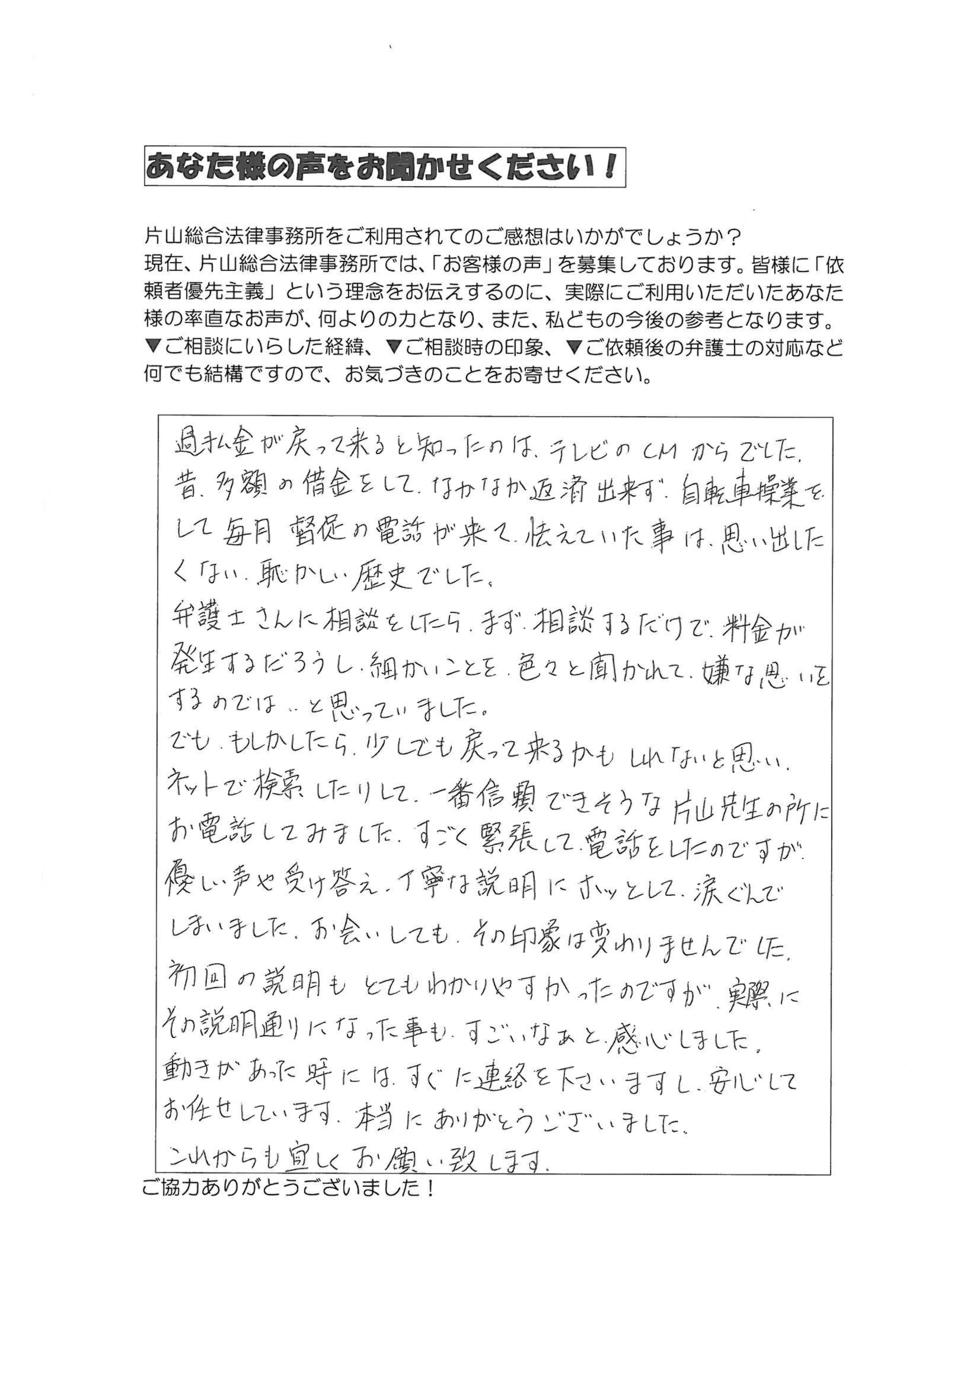 あなた様の声をお聞かせください！
片山総合法律事務所をご利用されてのご感想はいかがでしょうか？
現在、片山総合法律事務所では、「お客様の声」を募集しております。皆様に「依
頼者優先主義」という理念をお伝えするのに、実際にご利用いただいたあなた
様の率直なお声が、何よりの力となり、また、私どもの今後の参考となります。
▼ご相談にいらした経緯、▼ご相談時の印象、▼ご依頼後の弁護士の対応など
何でも結構ですので、お気づきのことをお寄せください。
過払金が戻って来ると知ったのは、テレビのCMからでした。
昔、多額の借金をして、なかなか返済出来ず、自転車操業を
して毎月督促の電話が来て、怯えていた事は、思い出した
くない、恥かしい歴史でした。
弁護士さんに相談をしたら、まず、相談するだけで、料金が
発生するだろうし、細かいことを、色々と聞かれて、嫌な思いを
するのでは‥と思っていました。
でも、もしかしたら、少しでも戻って来るかもしれないと思い、
ネットで検索したりして、一番信頼できそうな片山先生の所に
お電話してみました。すごく緊張して、電話をしたのですが、
優しい声や受け答え、丁寧な説明にホッとして、涙ぐんで
しまいました。お会いしても、その印象は変わりませんでした。
初回の説明もとてもわかりやすかったのですが、実際に
その説明通りになった事も、すごいなぁと、感心しました。
動きがあった時には、すぐに連絡を下さいますし、安心して
お任せしています。本当にありがとうございました。
これからも宜しくお願い致します。
ご協力ありがとうございました！